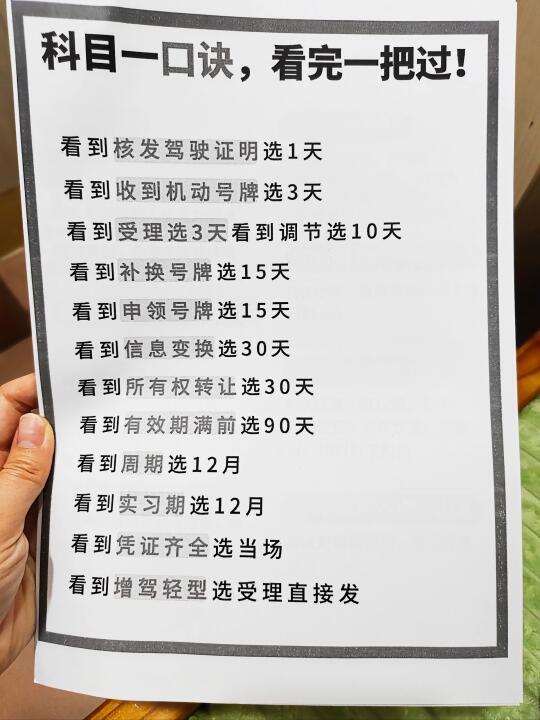 科目一口诀，看完一把过！
看到核发驾驶证明选1天
看到收到机动号牌选3天
看到受理选3天看到调节选10天
看到补换号牌选15天
看到申领号牌选15天
看到信息变换选30天
看到所有权转让选30天
看到有效期满前选90天
看到周期选12月
看到实习期选12月
看到凭证齐全选当场
看到增驾轻型选受理直接发